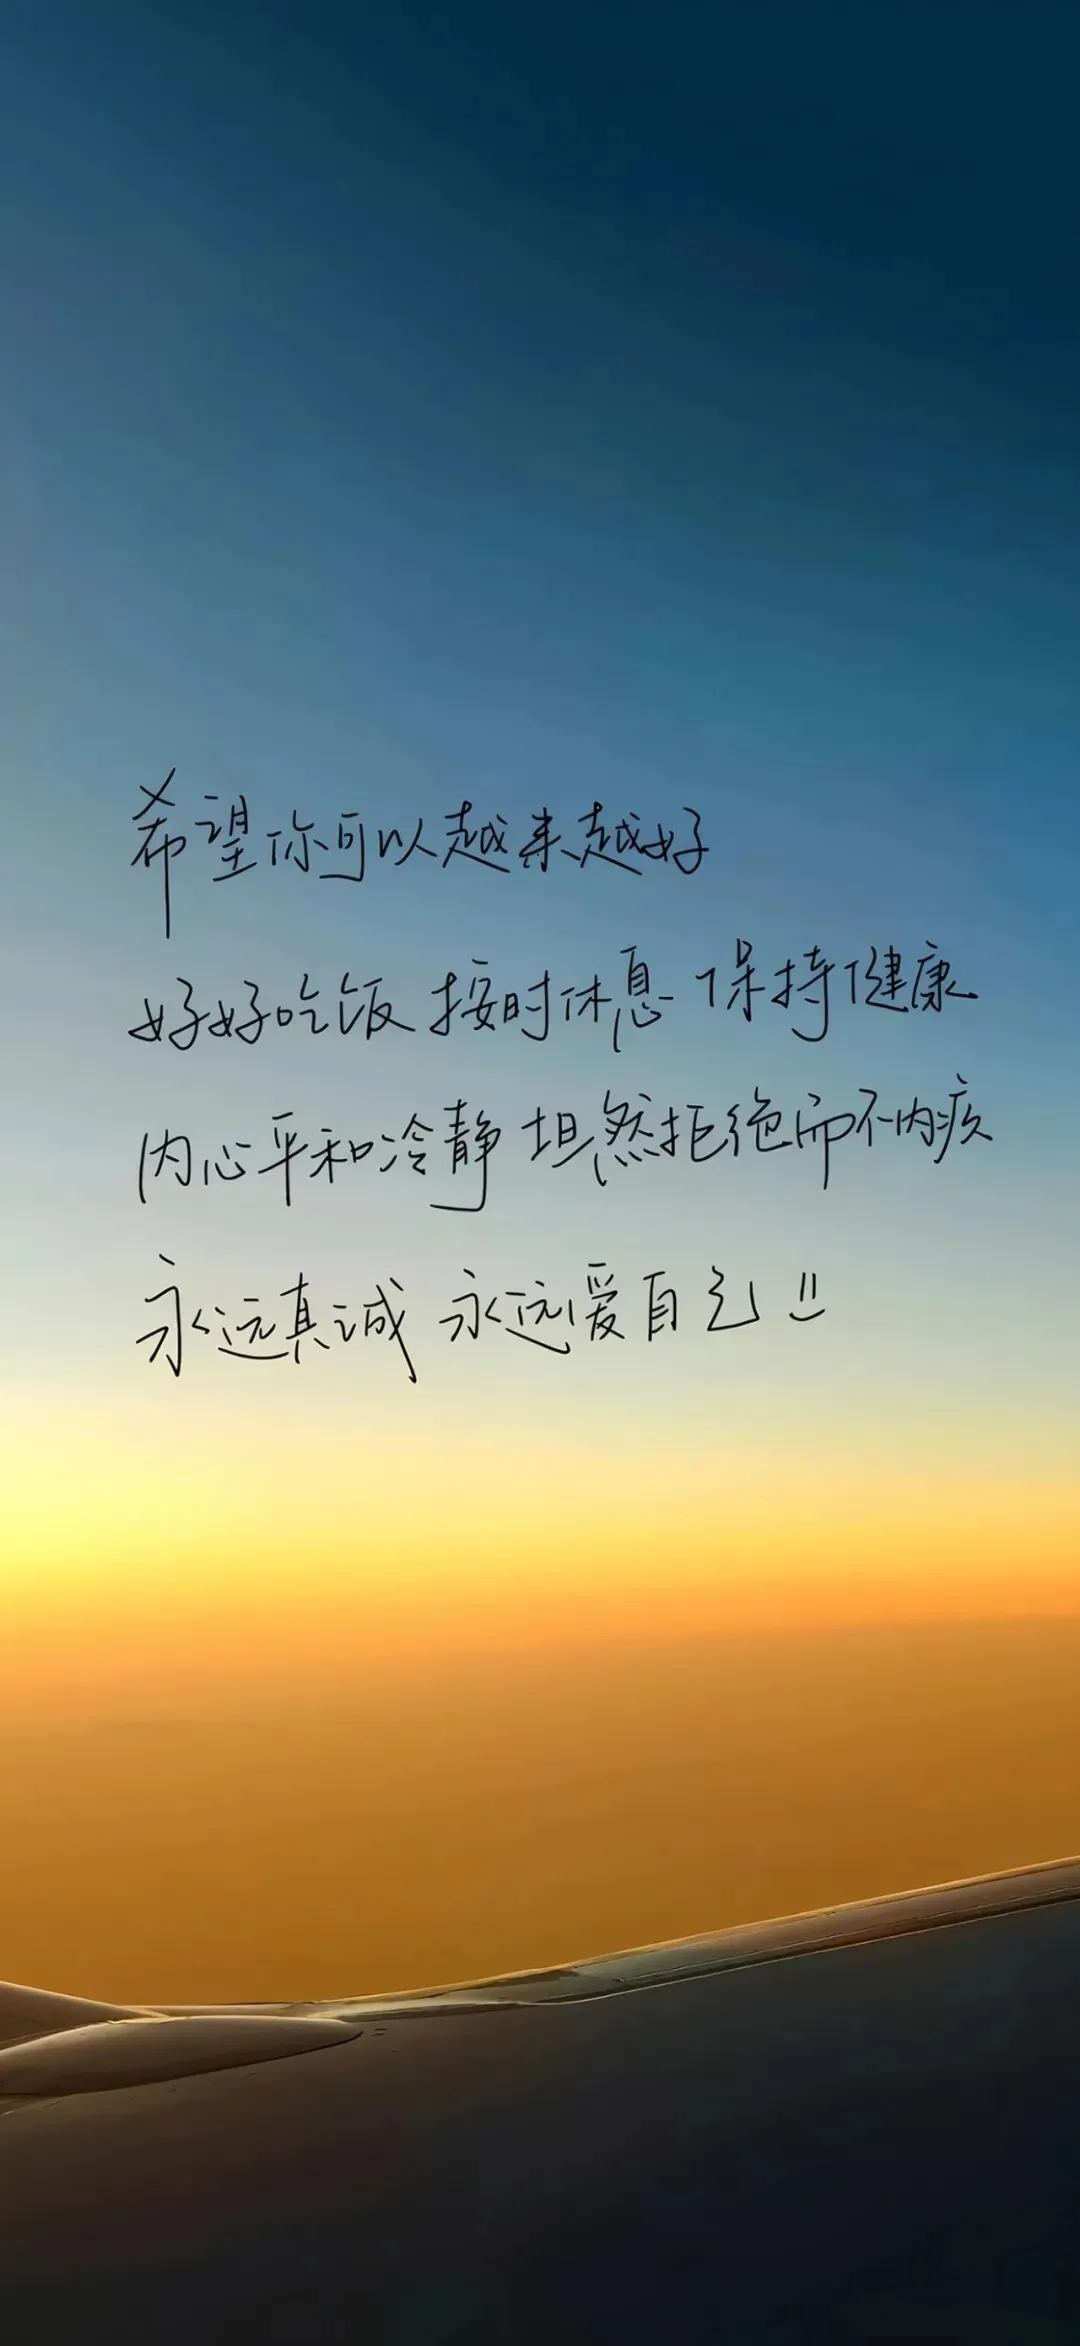 希望你可以越来越好
好好吃饭 按时休息 保持健康
内心平和冷静 坦然拒绝而不内疚
永远真诚 永远爱自己